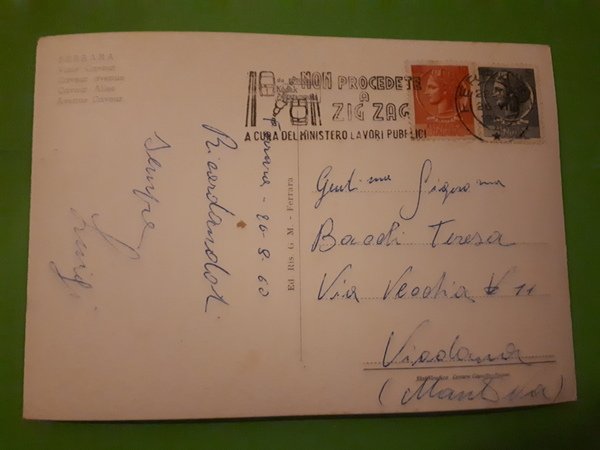 FERRARA
Viale Cavour
Cavour Avenue
Cavour Allee
Avenue Cavour
NON PROCEDETE
A
ZIG ZAG
A CURA DEL MINISTERO LAVORI PUBBLICI
Ferrara - 26-8-60
Ricordandoti
sempre
Luigi
Ed. Ris. G. M. - Ferrara
Gent.ma Signorina
Bacchi Teresa
Via Vecchia 11
Viadana
(Mantova)